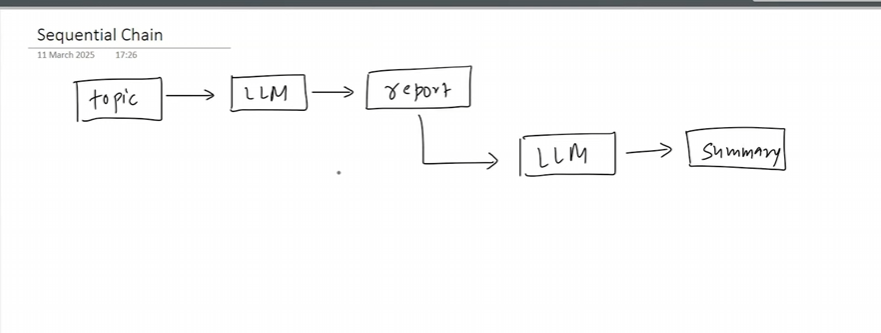 Sequential Chain
11 March 2025 17:26
topic
LLM
report
LLM
Summary